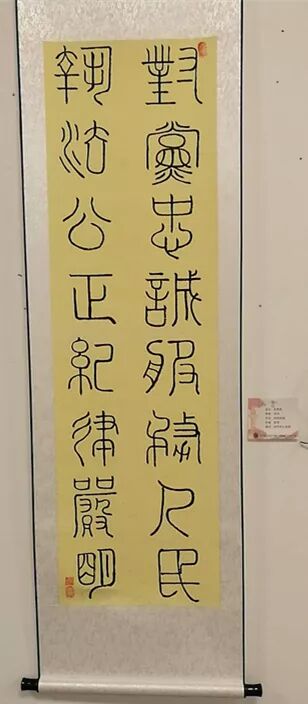 對黨忠誠服務人民
執法公正紀律嚴明